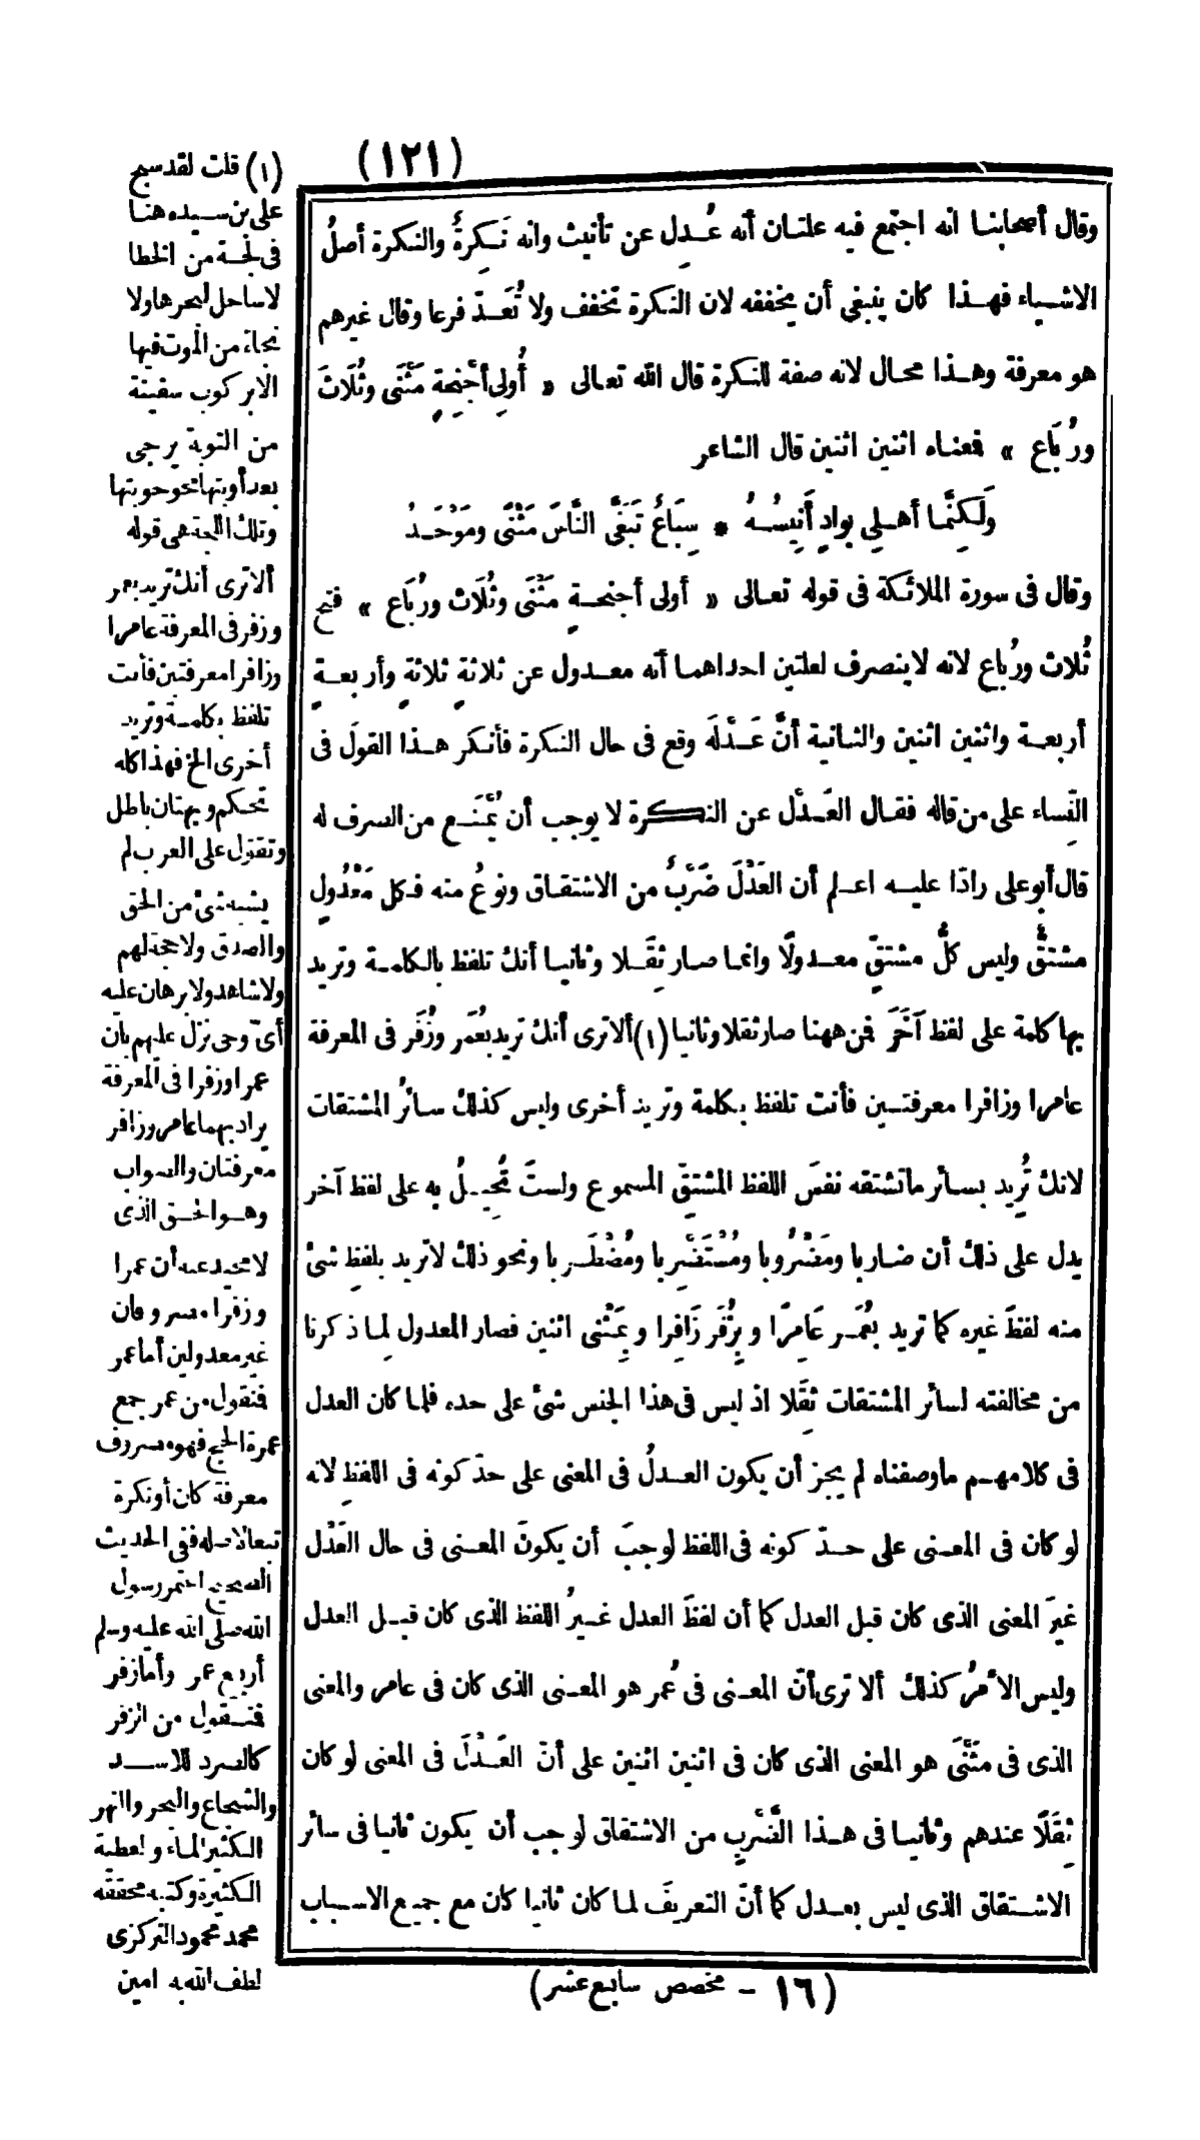 (١٢١)
وقال أصحابنا انه اجتمع فيه علتان أنه عُدِل عن تأنيث وانه نَكِرةٌ والنكرة أصلُ
الاشياء فهذا كان ينبغى أن يخففه لان النكرة تخفف ولا تُعَدّ فرعا وقال غيرهم
هو معرفة وهذا محال لانه صفة للنكرة قال الله تعالى « أُولِى أجْنِحةٍ مَثْنَى وثُلَاثَ
ورُبَاع » فعناه اثنين اثنين قال الشاعر
ولَكِنَّما أهلِي بوادٍ أَنِيسُهُ * سِبَاعٌ تَبَغَّى النَّاسَ مَثْنَى ومَوْحَدُ
وقال فى سورة الملائكة فى قوله تعالى « أولى أجنحةٍ مَثْنَى وثُلَاث ورُبَاع » فتح
ثُلاث ورُباع لانه لاينصرف لعلتين احداهما أنه معدول عن ثلاثةٍ ثلاثةٍ وأربعةٍ
أربعة واثنين اثنين والثانية أنَّ عَدْلَه وقع فى حال النكرة فأنكر هذا القولَ فى
الفِّساء على من قاله فقال العَدْل عن النكرة لا يوجب أن يُمْنَع من الصرف له
قال أبو على رادّا عليه اعلم أن العَدْلَ ضَرْبٌ من الاشتقاق ونوعٌ منه فكل مَعْدُولٍ
مشتقٌّ وليس كلُّ مشتقٍّ معدولًا وانما صار ثِقَلا وثانيا أنك تلفظ بالكلمة وتريد
بها كلمة على لفظ آخَرَ فمن ههنا صار ثقلا وثانيا (١) ألا ترى أنك تريد بعُمَر وزُفَر فى المعرفة
عامرا وزافرا معرفتين فأنت تلفظ بكلمة وتريد أخرى وليس كذلك سائرُ المشتقات
لانك تُرِيد بسائر ماتشتقه نفسَ اللفظ المشتقِّ المسموع ولستَ تُحِيلُ به على لفظ آخر
يدل على ذلك أن ضاربا ومَضْرُوبا ومُسْتَضْرِبا ومُضْطَرِبا ونحو ذلك لاتريد بلفظِ شئ
منه لفظَ غيره كما تريد بعُمَر عَامِرًا وبِزُفَر زَافِرا وبِمَثْنى اثنين فصار المعدول لِما ذكرنا
من مخالفته لسائر المشتقات ثِقَلا اذ ليس فى هذا الجنس شئ على حده فلما كان العدل
فى كلامهم ماوصفناه لم يجز أن يكون العدلُ فى المعنى على حدّ كونه فى اللفظِ لانه
لو كان فى المعنى على حدّ كونه فى اللفظ لوجبَ أن يكونَ المعنى فى حال العَدْل
غيرَ المعنى الذى كان قبل العدل كما أن لفظَ العدل غيرُ اللفظ الذى كان قبل العدل
وليس الأمْرُ كذلك ألا ترى أنّ المعنى فى عُمر هو المعنى الذى كان فى عامر والمعنى
الذى فى مَثْنَى هو المعنى الذى كان فى اثنين اثنين على أنّ العَدْلَ فى المعنى لو كان
ثِقَلًا عندهم وثانيا فى هذا الضَّرْبِ من الاشتقاق لوجب أن يكون ثانيا فى سائر
الاشتقاق الذى ليس بعدل كما أنّ التعريفَ لما كان ثانيا كان مع جميع الاسباب
(١) قلت لقد سبح
على بن سيده هنا
فى لجة من الخطا
لا ساحل لبحرها ولا
نجاة من الموت فيها
الا بركوب سفينة
من التوبة يرجى
بعد أوبتها محو حوبتها
وتلك اللجة هى قوله
ألا ترى أنك تريد بعمر
وزفر فى المعرفة عامرا
وزافرا معرفتين فأنت
تلفظ بكلمة وتريد
أخرى الخ فهذا كله
تحكم وبهتان باطل
وتقول على العرب لم
يشبه شئ من الحق
والصدق ولا حجة لهم
ولا شاهد ولا برهان عليه
أىّ وحى نزل عليهم بأن
عمرا وزفرا فى المعرفة
يراد بهما عامر وزافر
معرفتان والصواب
وهو الحق الذى
لا محيد عنه أن عمرا
وزفرا مصروفان
غير معدولين أما عمر
فنقول من عمر جمع
عمرة الحج فهو مصروف
معرفة كان أو نكرة
تبعا لاصله ففى الحديث
الصحيح اعتمر رسول
الله صلى الله عليه وسلم
أربع عمر وأما زفر
فنقول من الزفر
كالصرد للاسد
والشجاع والبحر والنهر
الكثير الماء والعطية
الكثيرة وكتبه محققه
محمد محمود التركزى
لطف الله به امين
(١٦ - مخصص سابع عشر)